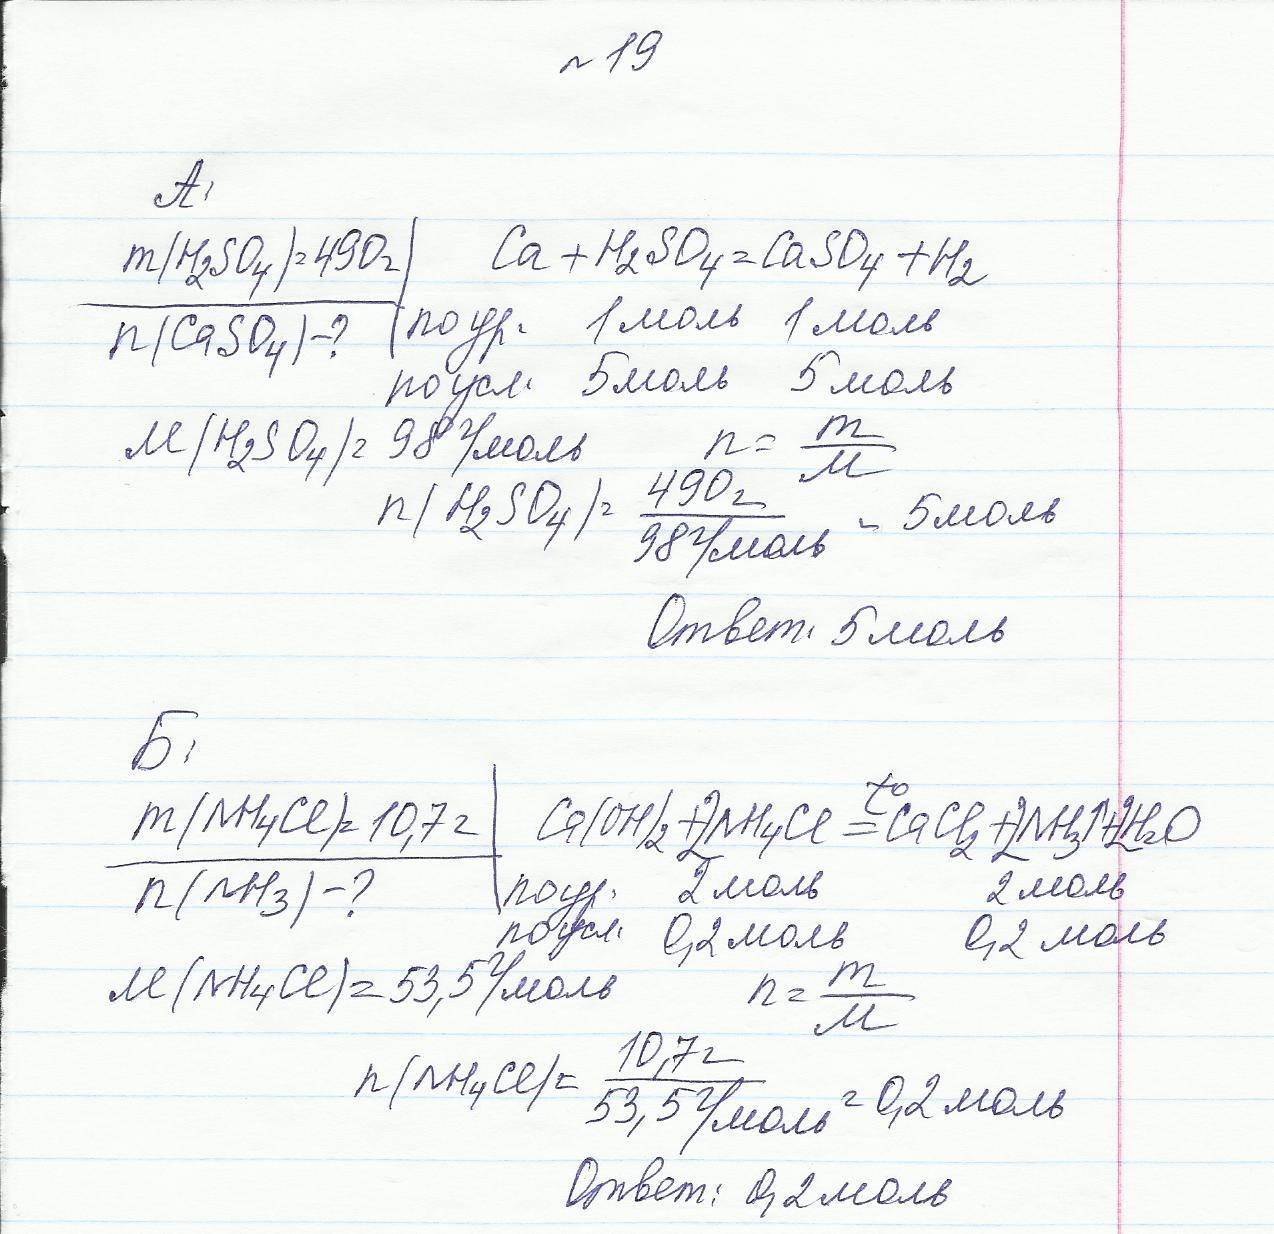 ~19
А:
m(H₂SO₄)=490г Ca+H₂SO₄=CaSO₄+H₂
n(CaSO₄)-? по ур. 1моль 1моль
по усл: 5моль 5моль
M(H₂SO₄)=98г/моль n=m/M
n(H₂SO₄)=490г/98г/моль = 5моль
Ответ: 5моль
Б:
m(NH₄Cl)=10,7г Ca(OH)₂+2NH₄Cl =t° CaCl₂+2NH₃↑+2H₂O
n(NH₃)-? по ур. 2моль 2моль
по усл: 0,2моль 0,2моль
M(NH₄Cl)=53,5г/моль n=m/M
n(NH₄Cl)=10,7г/53,5г/моль=0,2моль
Ответ: 0,2моль